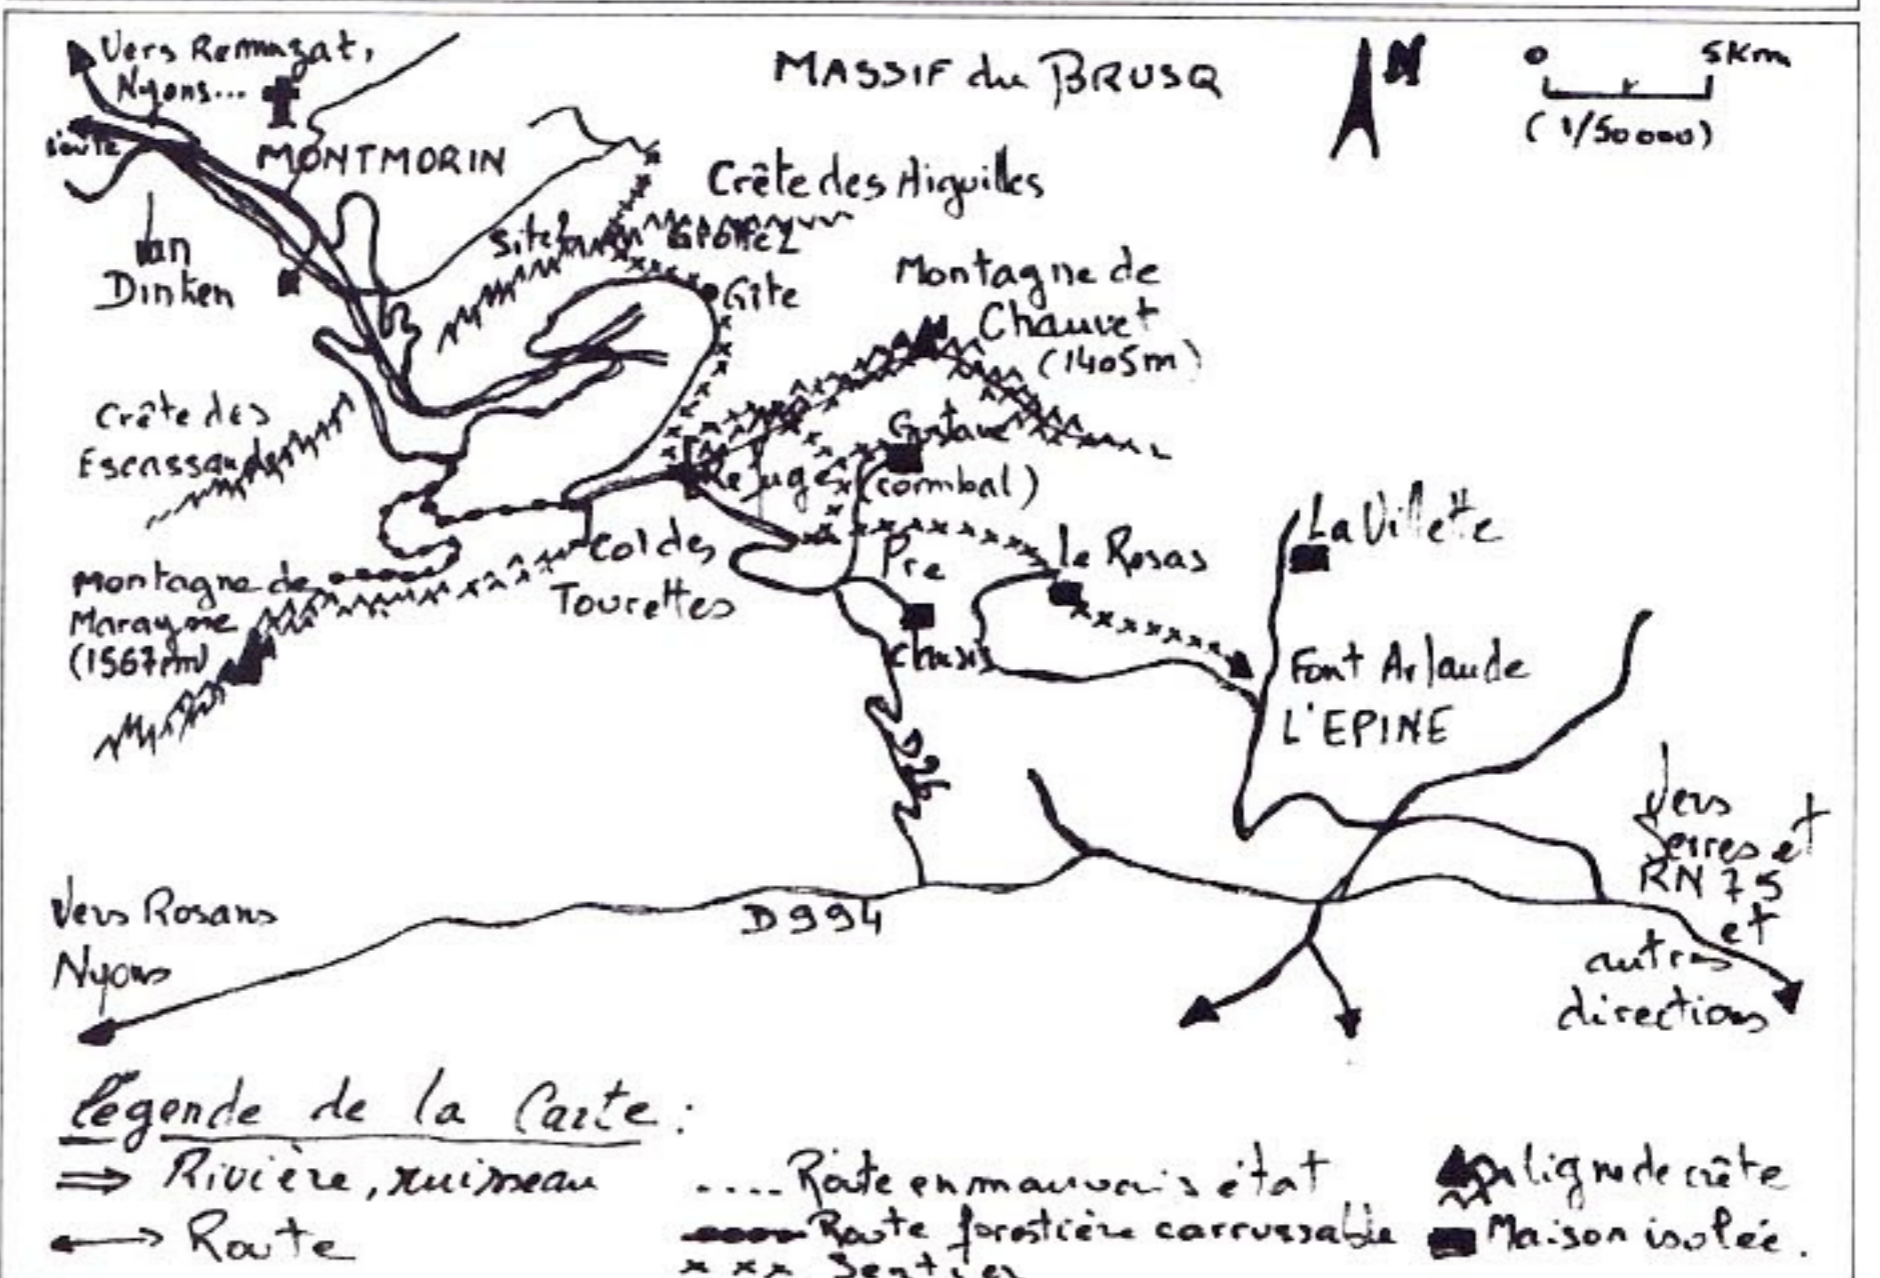 Vers Remuzat,
Nyons...
MASSIF du BRUSQ
N
0 5Km
(1/50000)
MONTMORIN
Crête des Aiguilles
Site 2
Grotte 2
Van
Dinken
Gîte
Montagne de
Chauvet
(1405m)
Crête des
Gustave
Refuge
(combal)
La Villette
Col des
Tourettes
Pré
le Rosas
Montagne de
(1567m)
Clusis
Font Arlaude
L'EPINE
D26
Vers
Serres et
RN 75
et
autres
directions
Vers Rosans
Nyons
D994
Légende de la Carte :
Rivière, ruisseau
Route
.... Route en mauvais état
Route forestière carrossable
x x x Sentier
ligne de crête
Maison isolée.